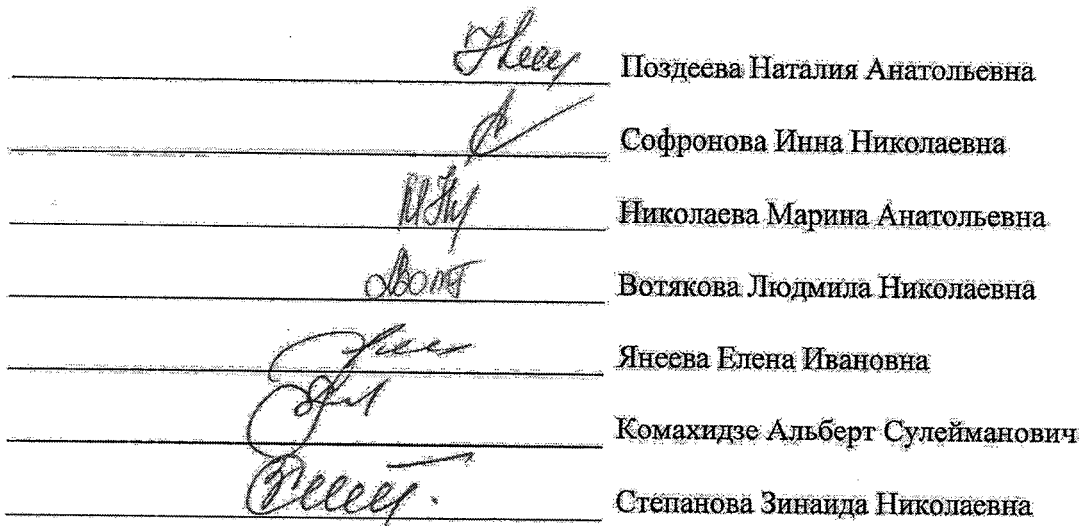 Поздеева Наталия Анатольевна
Софронова Инна Николаевна
Николаева Марина Анатольевна
Вотякова Людмила Николаевна
Янеева Елена Ивановна
Комахидзе Альберт Сулейманович
Степанова Зинаида Николаевна